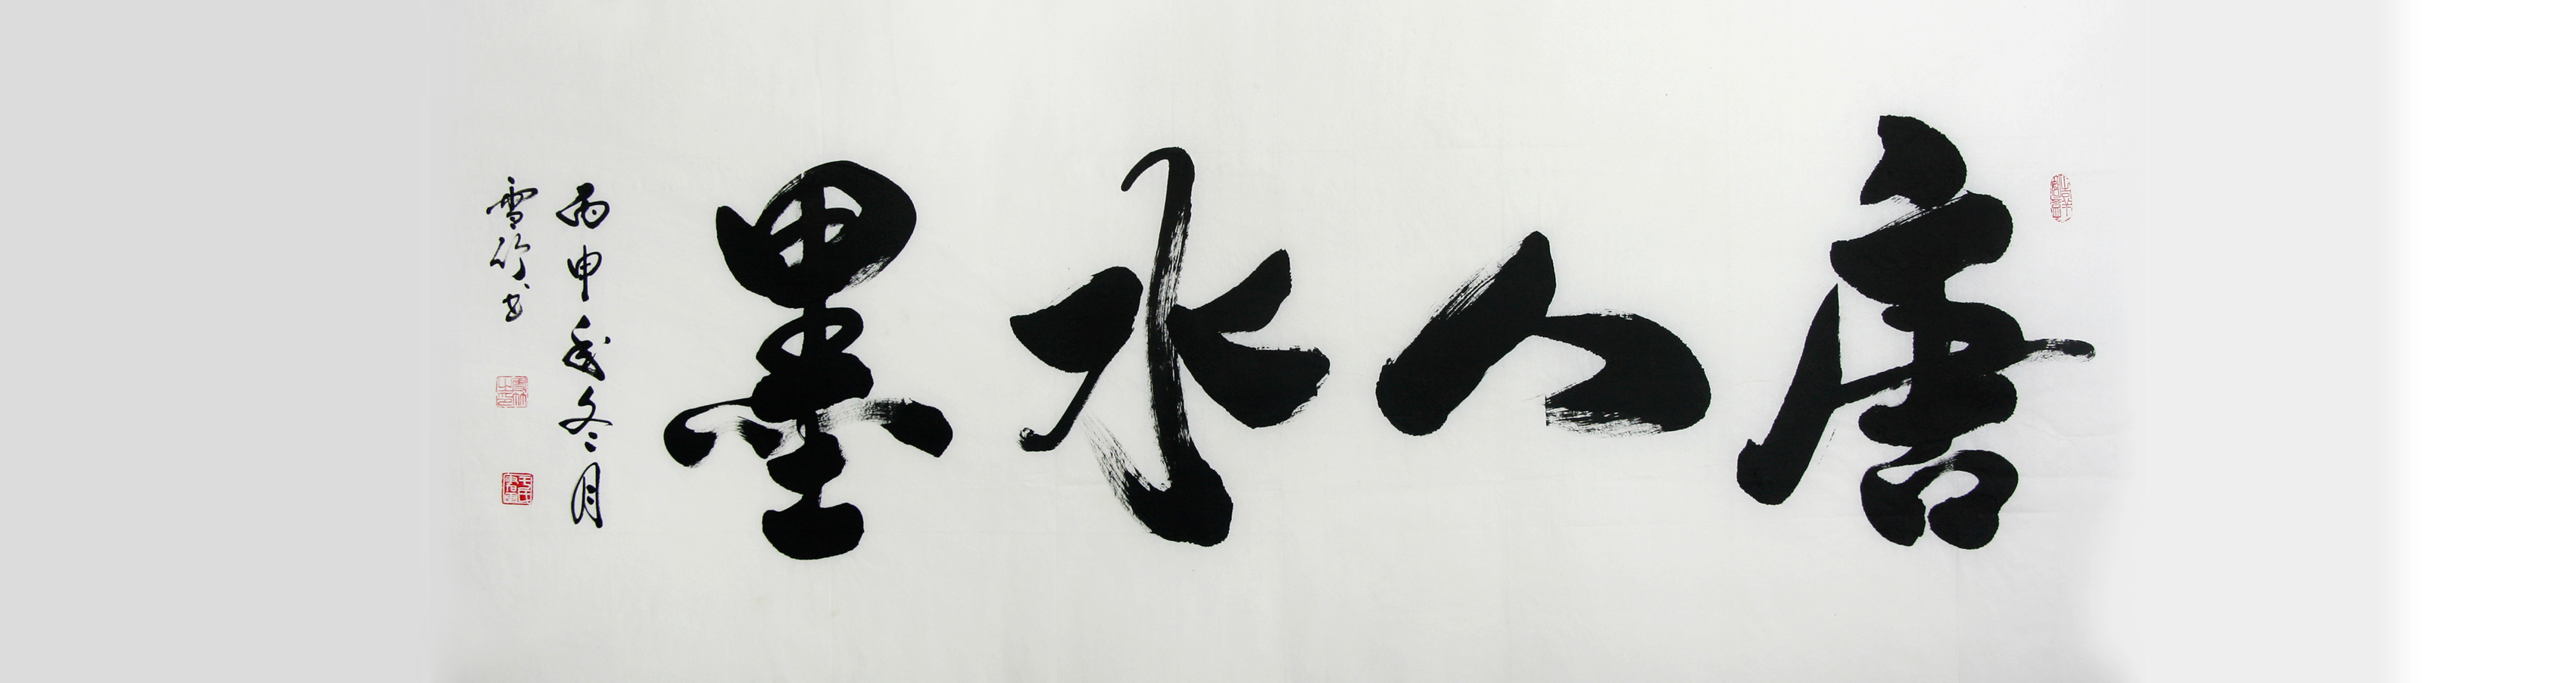 唐人水墨
丙申年冬月
雪竹书